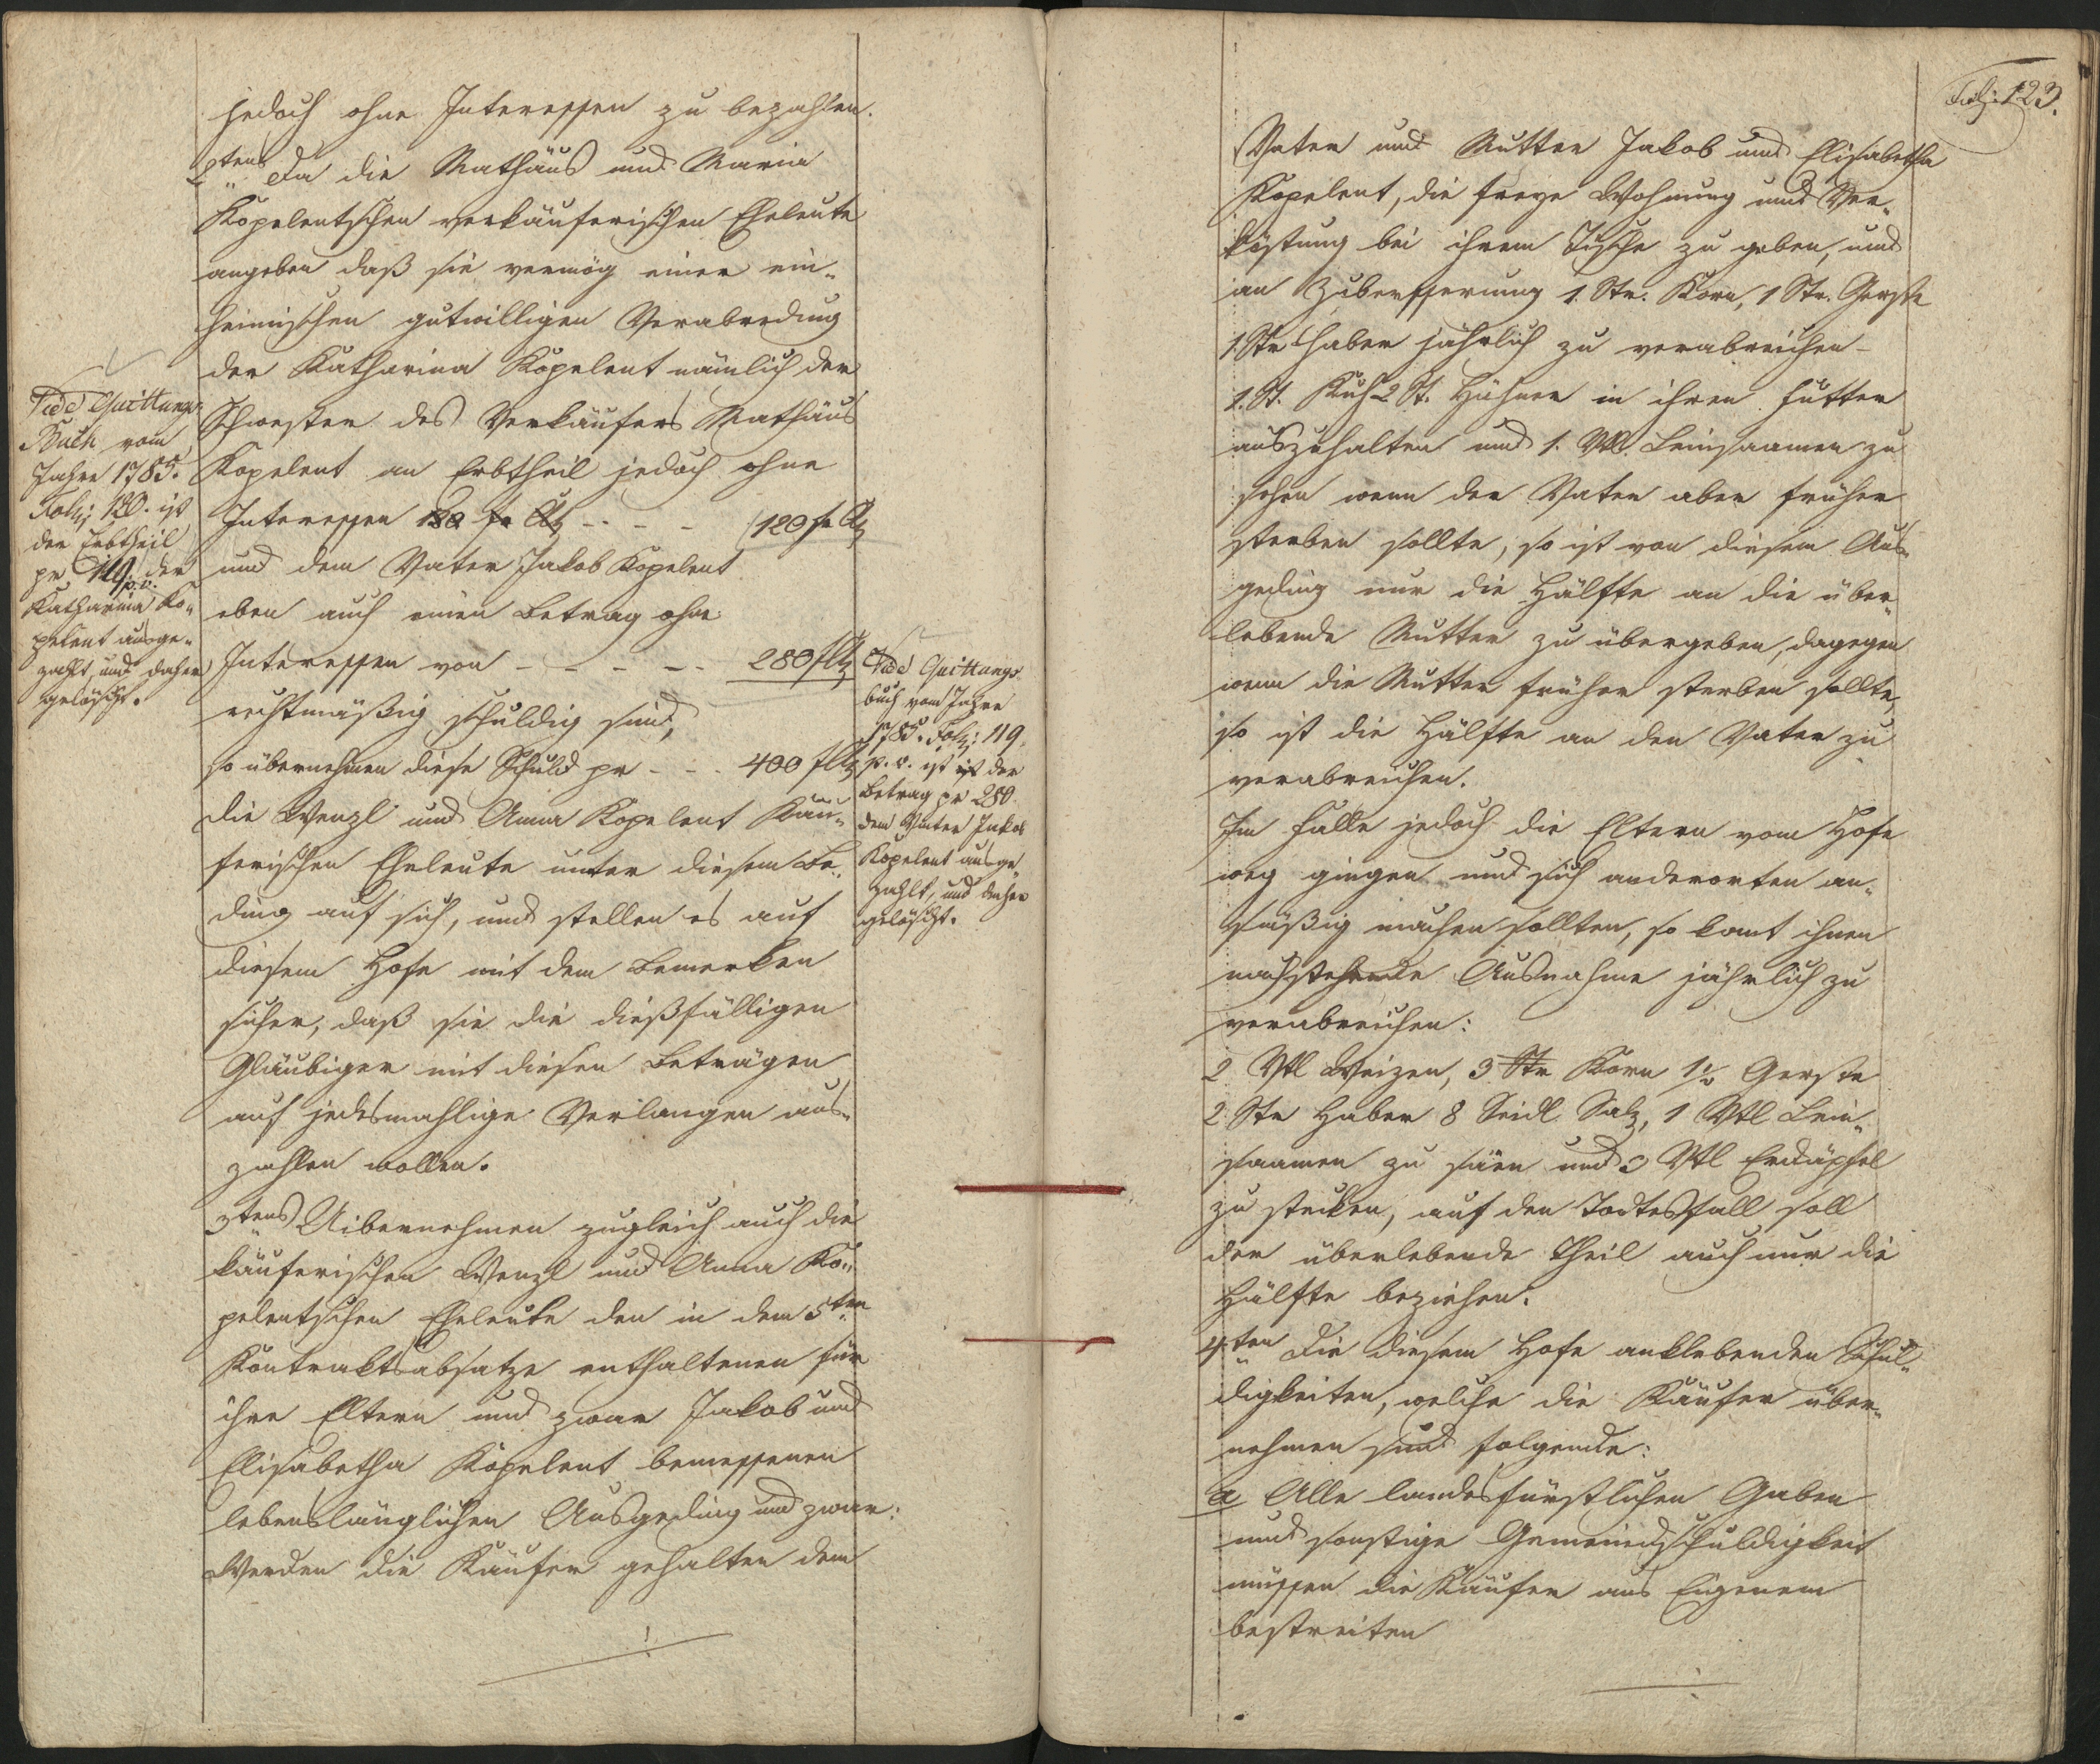 jedoch ohne Interessen zu bezahlen.
2tens Da die Mathäus und Maria
Kopelentschen verkäuferischen Eheleute
angeben daß sie vermög einer ein„
heimischen gutwilligen Verabredung
der Katharina Kopelent nämlich der
Schwester des Verkäufers Mathäus
Kopelent an Erbtheil jedoch ohne
Interessen 120 fr - - - - 120 fr
und dem Vater Jakob Kopelent
eben auch einen Betrag ohne
Interessen von - - - - - 280 f
rechtmäßig schuldig sind,
so übernehmen diese Schuld pr - - - 400 f
die Wenzl und Anna Kopelent Käu„
ferischen Eheleute unter diesem Be„
ding auf sich, und stellen es auf
diesem Hofe mit dem Bemerken
sicher, daß sie die dießfälligen
Gläubiger mit diesen Beträgen
auf jedesmahlige Verlangen aus„
zahlen wollen.
3tens Uibernehmen zugleich auch die
käuferischen Wenzl und Anna Ko„
pelentschen Eheleute den in dem 5ten
Kontraktsabsatze enthaltenen für
ihre Eltern und zwar Jakob und
Elisabetha Kopelent bemessenen
lebenslänglichen Ausgeding und zwar:
Werden die Käufer gehalten dem
Vide Quittungs
Buch vom
Jahre 1785.
Folz: 120. ist
der Erbtheil
pr 119 p.v. der
Katharina Ko„
pelent ausge„
zahlt, und daher
gelöscht.
Vide Quittungs
buch vom Jahre
1785. Folz: 119.
p. v. ist ist der
Betrag pr 280
dem Vater Jakob
Kopelent ausge„
zahlt, und daher
gelöscht.
Folz: 123.
Vater und Mutter Jakob und Elisabetha
Kopelent, die freye Wohnung und Ver„
köstung bei ihrem Tische zu geben, und
an Zubesserung 1. Str. Korn, 1 Str. Gerste
1. Str Haber jährlich zu verabreichen -
1. St. Kuh 2 St. Hühner in ihren Futter
auszuhalten und 1. Vtl. Leinsaamen zu
sehen wenn der Vater aber früher
sterben sollte, so ist von diesem Aus„
geding nur die Hälfte an die über„
lebende Mutter zu übergeben, dagegen
wenn die Mutter früher sterben sollte,
so ist die Hälfte an den Vater zu
verabreichen.
Im Falle jedoch die Eltern vom Hofe
weg gingen und sich anderorten an„
säßig machen sollten, so kömt ihnen
nachstehende Ausnahme jährlich zu
verabreichen:
2 Vtl Weizen, 3 Str Korn 1½ Gerste
2 Str Haber 8 Seidl Salz, 1 Vtl Lein„
saamen zu säen und 3 Vtl Erdäpfel
zu stecken, auf den Todtesfall soll
der überlebende Theil auch nur die
Hälfte beziehen.
4ten Die diesem Hofe anklebenden Schul„
digkeiten, welche die Käufer über„
nehmen sind folgende:
a Alle landesfürstlichen Gaben
und sonstige Gemeindschuldigkeit
müssen die Käufer aus Eigenem
bestreiten